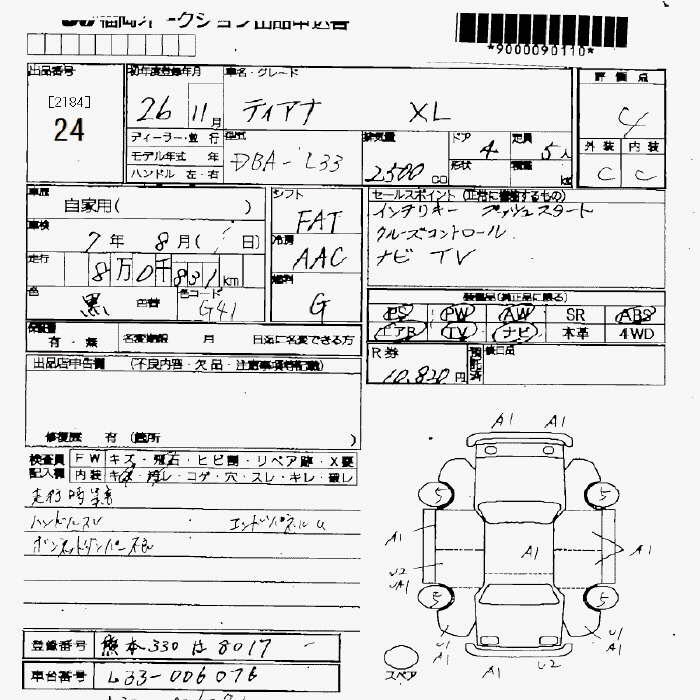 福岡オークション出品申込書
*9000090110*
出品番号
[2184]
24
初年度登録年月
26 11月
車名・グレード
ティアナ XL
評価点
4
ディーラー・並行
モデル年式 年
ハンドル 左・右
型式
DBA-L33
排気量
2,500 CC
ドア 4
形状
定員 5人
積載 kg
外装 内装
C C
車歴
自家用( )
車検
7年 8月( 日)
走行
8万0千831km
色 黒 色替
色コード G41
シフト
FAT
冷房
AAC
燃料
G
セールスポイント (正常に機能するもの)
インテリキー プッシュスタート
クルーズコントロール
ナビ TV
装備品(純正品に限る)
PS PW AW SR ABS
エアB TV ナビ 本革 4WD
保証書
有・無
名変期限 月 日迄に名変できる方
R券
10,820円
預託済
後日品
出品店申告欄 (不良内容・欠品・注意事項等記載)
修復歴 有 (箇所 )
検査員記入欄
FW キズ・飛石・ヒビ割・リペア跡・X要
内装 キズ・汚レ・コゲ・穴・スレ・キレ・破レ
走行時異音
ハンドルスレ エンドパネルU
ボンネットダンパー不良
A1 A1
5 5
A1 A1 A1
U2
UA1
5 5
U1
A1
U1
A1
スペア
A1 U2
登録番号 熊本330は8017
車台番号 L33-006076